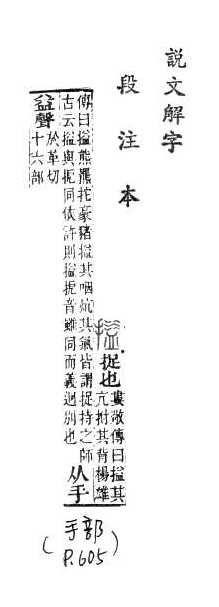 說文解字
段注本
搤
捉也
婁敬傳曰搤其
亢拊其背楊雄
傳曰搤熊羆拕豪豬搤其咽炕其氣皆謂捉持之師
古云搤與扼同依許則搤扼音雖同而義迥別也
从手
益聲
於革切
十六部
(手部
P.605)